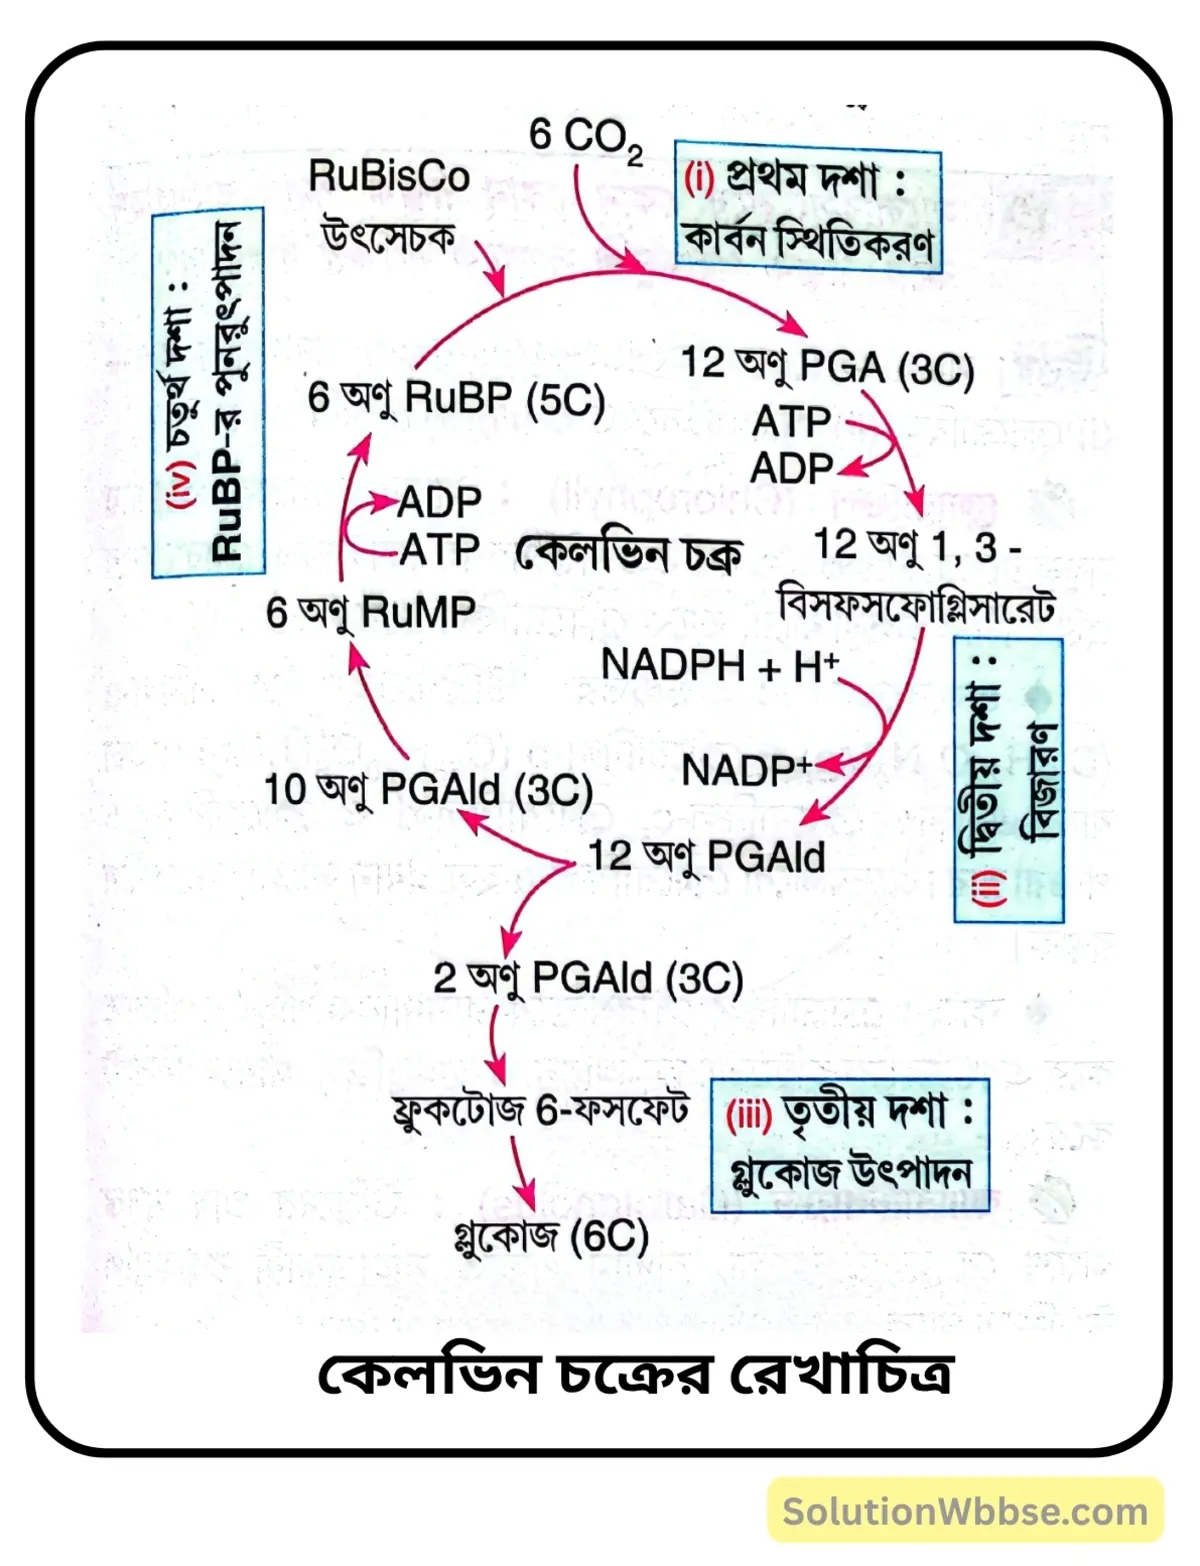 6 CO₂
RuBisCo
উৎসেচক
(i) প্রথম দশা :
কার্বন স্থিতিকরণ
(iv) চতুর্থ দশা :
RuBP-র পুনরুৎপাদন
6 অণু RuBP (5C)
12 অণু PGA (3C)
ATP
ADP
ADP
ATP
কেলভিন চক্র
12 অণু 1, 3 -
বিসফসফোগ্লিসারেট
6 অণু RuMP
NADPH + H⁺
NADP⁺
(ii) দ্বিতীয় দশা :
বিজারণ
10 অণু PGAld (3C)
12 অণু PGAld
2 অণু PGAld (3C)
ফ্রুকটোজ 6-ফসফেট
(iii) তৃতীয় দশা :
গ্লুকোজ উৎপাদন
গ্লুকোজ (6C)
কেলভিন চক্রের রেখাচিত্র
SolutionWbbse.com